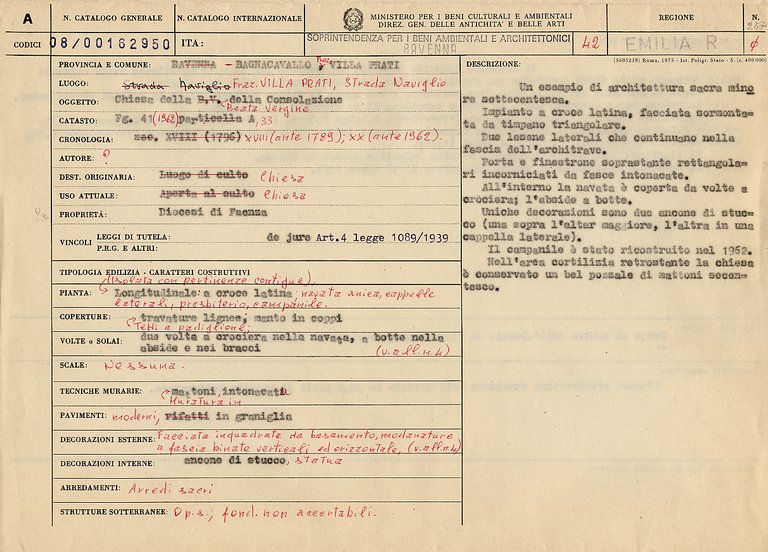 A
N. CATALOGO GENERALE
N. CATALOGO INTERNAZIONALE
MINISTERO PER I BENI CULTURALI E AMBIENTALI
DIREZ. GEN. DELLE ANTICHITA' E BELLE ARTI
REGIONE
N.
CODICI
08/00162950
ITA:
SOPRINTENDENZA PER I BENI AMBIENTALI E ARCHITETTONICI
RAVENNA
42
EMILIA R
(5605239) Roma, 1975 - Ist. Poligr. Stato - S. (c. 400.000)
PROVINCIA E COMUNE: RAVENNA - BAGNACAVALLO, VILLA PRATI
LUOGO: Strada Naviglio Fraz. VILLA PRATI, Strada Naviglio
OGGETTO: Chiesa della B.V. della Consolazione
Beata Vergine
CATASTO: Fg. 41 (1962) particella A, 33
CRONOLOGIA: sec. XVIII (1796) XVIII (ante 1789); XX (ante 1962).
AUTORE: ?
DEST. ORIGINARIA: Luogo di culto Chiesa
USO ATTUALE: Aperto al culto Chiesa
PROPRIETÀ: Diocesi di Faenza
VINCOLI
LEGGI DI TUTELA: de jure Art.4 legge 1089/1939
P.R.G. E ALTRI:
TIPOLOGIA EDILIZIA - CARATTERI COSTRUTTIVI
(Isolata con pertinenze contigue)
PIANTA: Longitudinale a croce latina, navata unica, cappelle
laterali, presbiterio, campanile.
COPERTURE: travature lignee, manto in coppi
Tetti a padiglione;
VOLTE o SOLAI: due volta a crociera nella navata, a botte nella
abside e nei bracci
(v. all. n. 4)
SCALE: Nessuna.
TECNICHE MURARIE: mattoni, intonacati
Muratura in
PAVIMENTI: moderni, rifatti in graniglia
DECORAZIONI ESTERNE: Facciata inquadrata da basamento, modanature
a fascia binate verticali ed orizzontale, (v. all. n. 4)
DECORAZIONI INTERNE: ancone di stucco, statua
ARREDAMENTI: Arredi sacri
STRUTTURE SOTTERRANEE: O.p.s.; fond. non accertabili.
DESCRIZIONE:
Un esempio di architettura sacra mino
re settecentesca.
Impianto a croce latina, facciata sormonta=
ta da timpano triangolare.
Due lesene laterali che continuano nella
fascia dell'architrave.
Porta e finestrone soprastante rettangola=
ri incorniciati da fasce intonacate.
All'interno la navata è coperta da volte a
crociera; l'abside a botte.
Uniche decorazioni sono due ancone di stuc=
co (una sopra l'altar maggiore, l'altra in una
cappella laterale).
Il campanile è stato ricostruito nel 1962.
Nell'area cortilizia retrostante la chiesa
è conservato un bel pozzale di mattoni secen=
tesco.